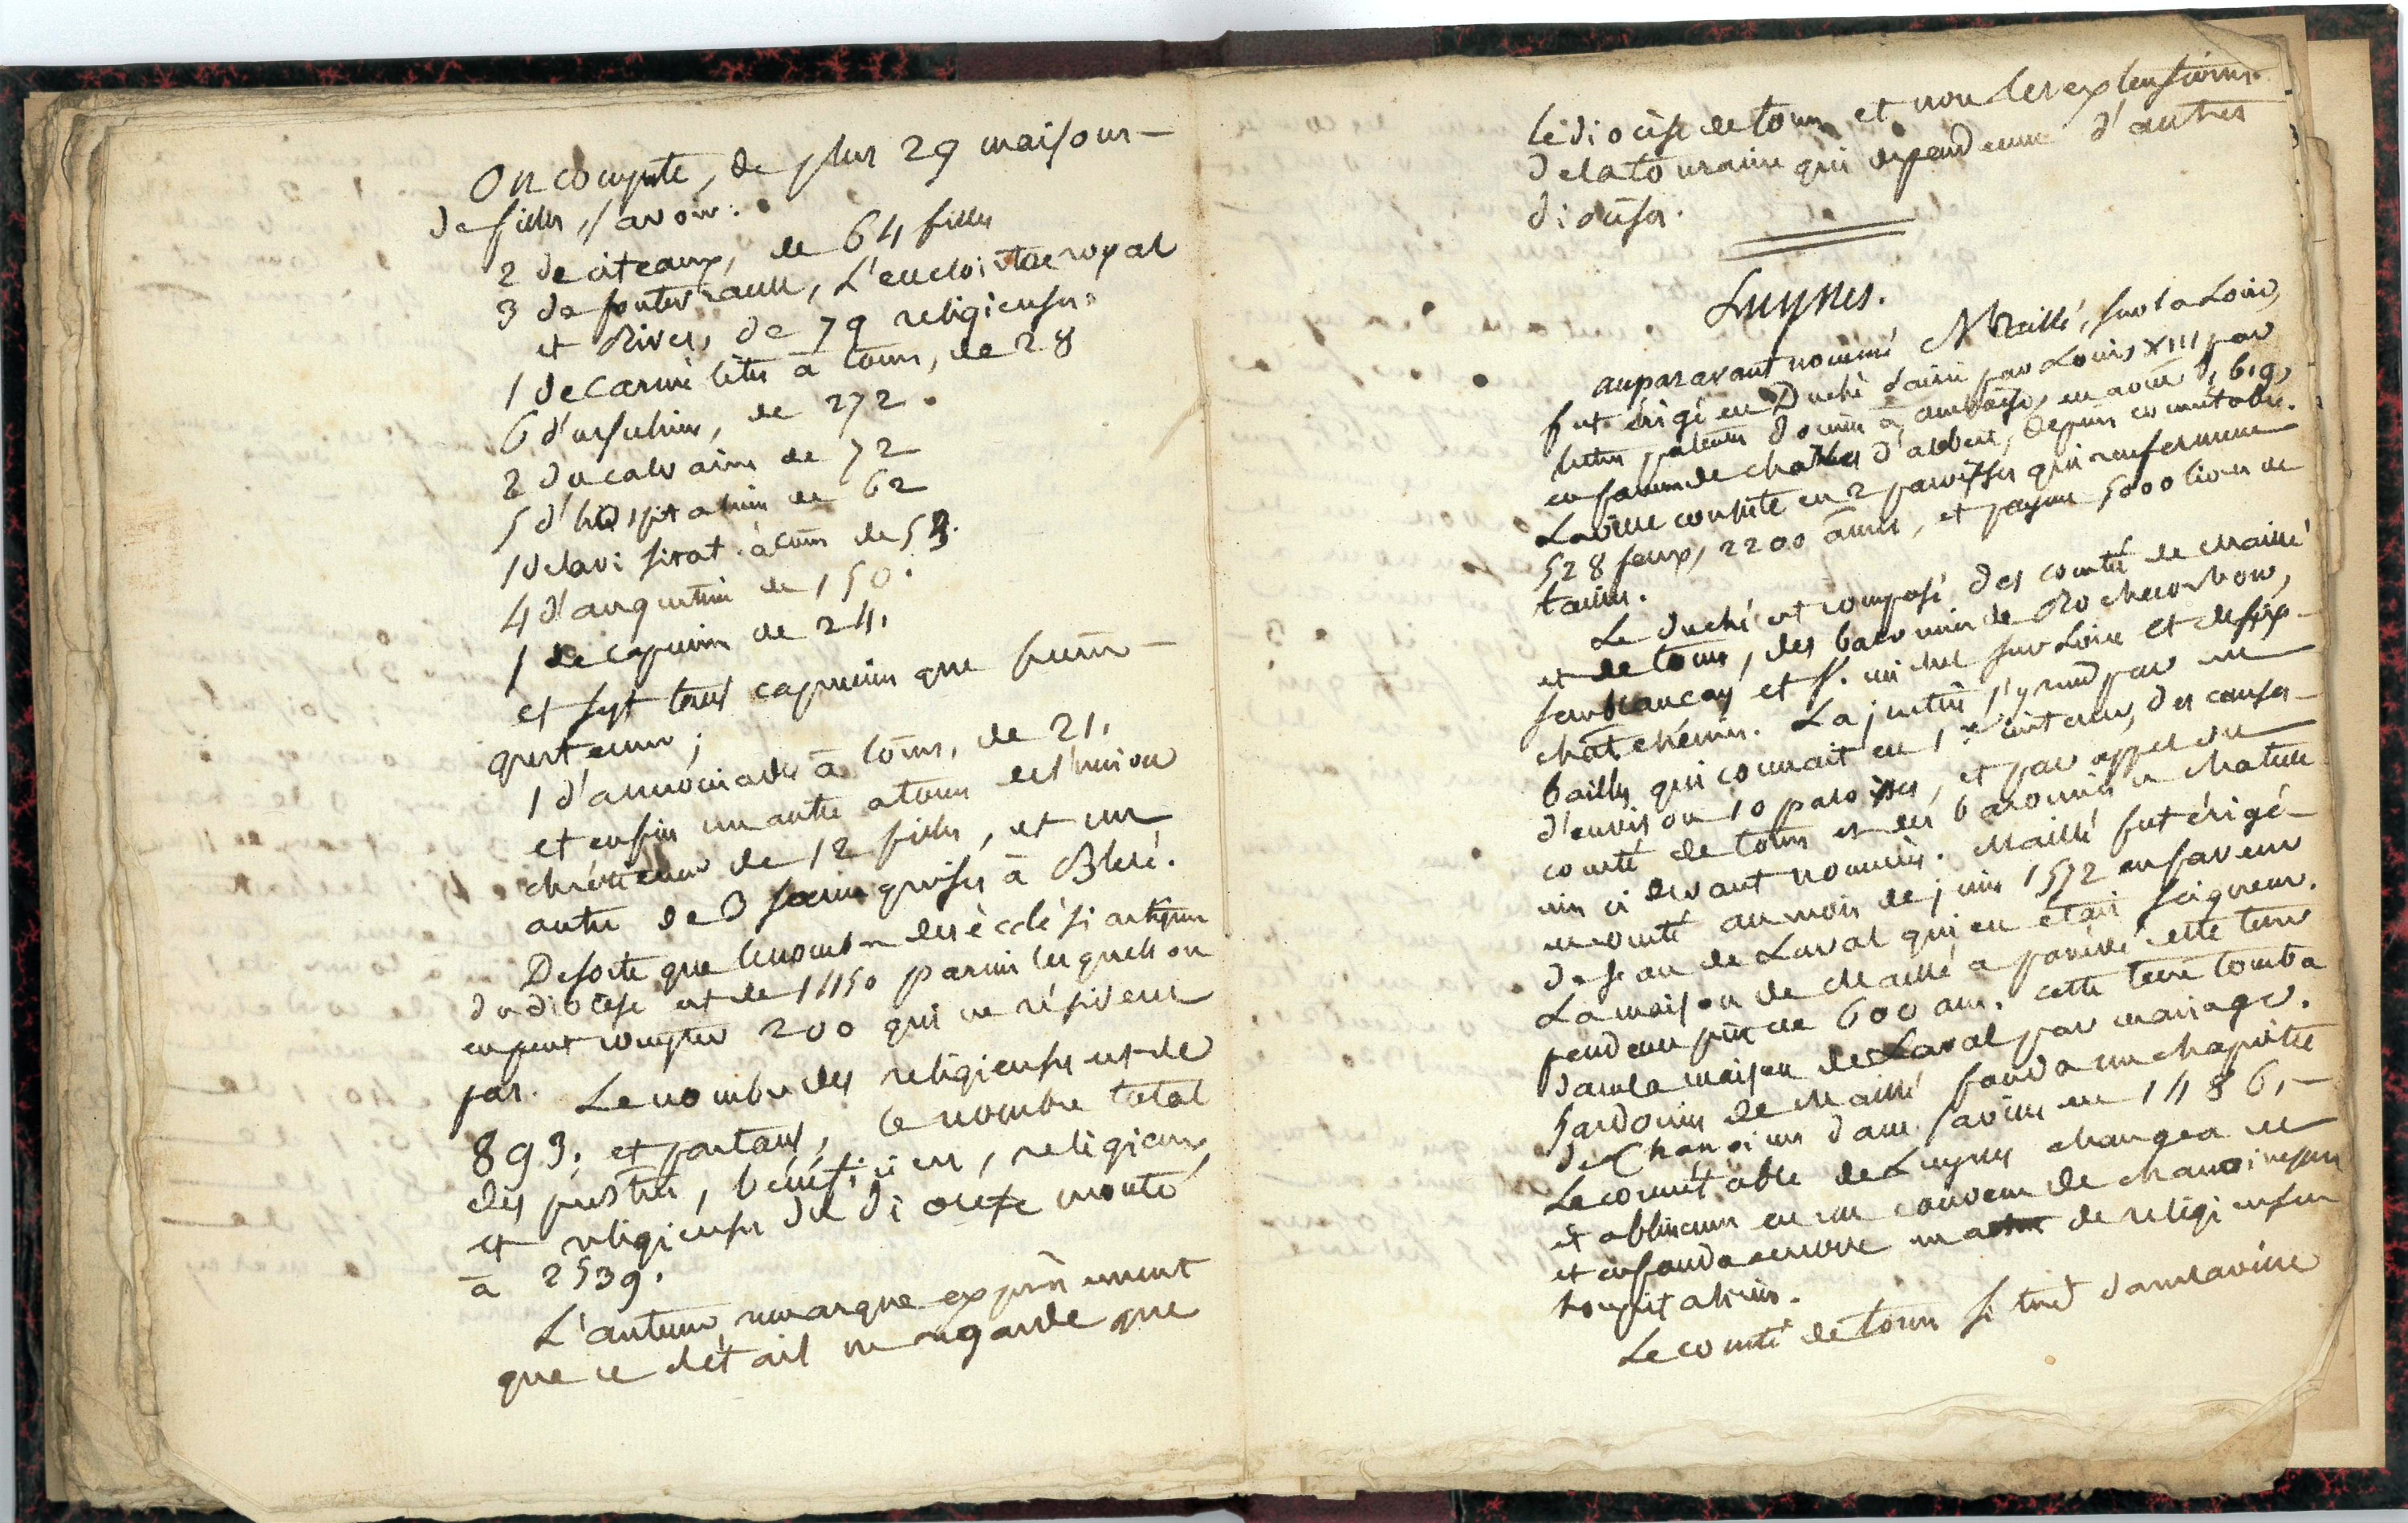 On compte, de plus 29 maisons
de filles, savoir:
2 de citeaux, de 64 filles
3 de fontevrault, L'encloitre royal
et Rives, de 79 religieuses
1 de carmelites à tours, de 28
6 d'ursulines, de 272.
2 du calvaire de 72
5 d'hospitalieres de 62
1 de la visitat. à tours de 53.
4 d'augustines de 150.
1 de capucins de 24.
et sept tant capucins que
1 d'annonciades à tours, de 21,
et enfin un autre a tours de l'union
chrétienne de 12 filles, et un
autre de 3 soeurs grises à Bleré.
De sorte que le nombre des ecclésiastiques
du diocese est de 1450 parmi lesquels on
en peut compter 200 qui ne résident
pas. Le nombre des religieuses est de
893; et partant, le nombre total
des prestres, bénéficiers, religieux
et religieuses du diocese monte
à 2539.
L'auteur remarque expressement
que ce détail ne regarde que
le diocese de tours et non les extensions
de la touraine qui dependent d'autres
dioceses.
Luynes.
auparavant nommé Maillé, sur la Loire,
fut érigé en Duché Pairie par Louis XIII par
lettres patentes données à amboise, en aout 1619,
en faveur de charles d'albert, depuis connetable.
La ville consiste en 2 paroisses qui renferment
528 feux, 2200 ames, et payent 5000 livres de
tailles.
Le duché est composé des comté de Maillé
et de tours, des baronnies de Rochecorbon,
semblancay et S. michel sur Loire et de six
chatelenies. La justice s'y rend par un
bailly qui connait en 1re instance, des causes
d'environ 10 paroisses, et par appel du
comté de tours et des baronnies et chatelle
nies ci devant nommées. Maillé fut érigé
en comté au mois de juin 1572 en faveur
de Jean de Laval qui en était seigneur.
La maison de Maillé a possédé cette terre
pendant près de 600 ans. cette terre tomba
dans la maison de Laval par mariage.
hardouin de Maillé fonda un chapitre
de Chanoines dans sa ville en 1486,
Le connétable de Luynes changea cet
établissement en un couvent de chanoinesses
et en fonda encore un autre de religieuses
hospitalieres.
Le comté de tours s'étend dans la ville